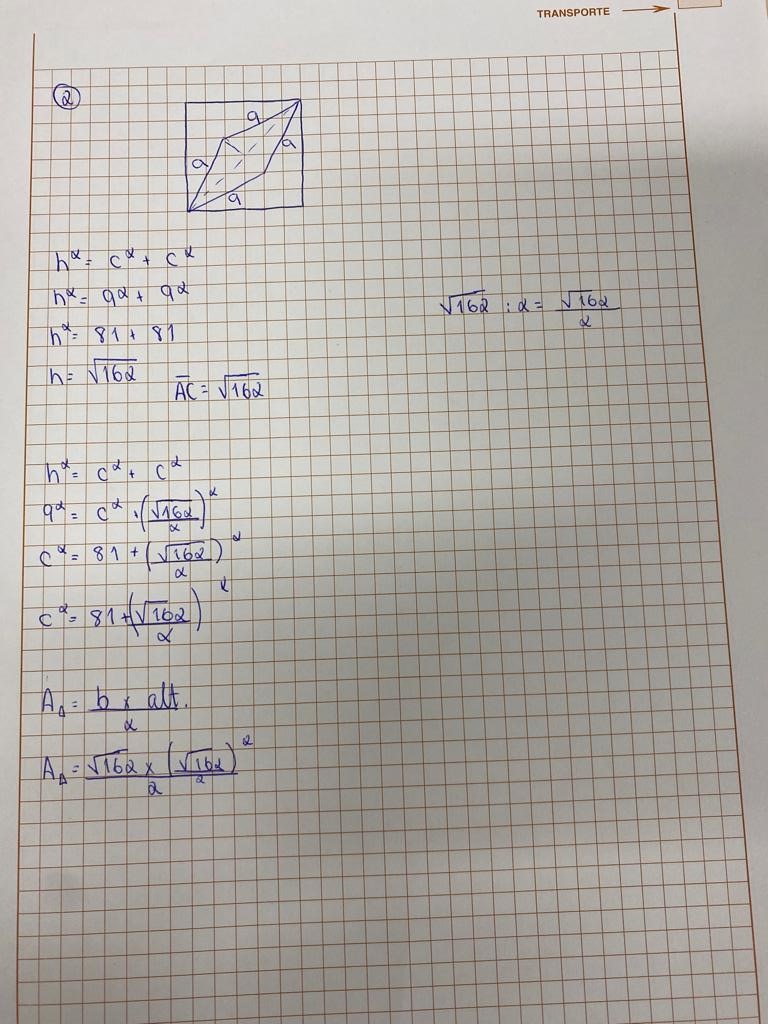 TRANSPORTE
2
a
a
a
a
h² = c² + c²
h² = 9² + 9²
√162 : 2 = √162/2
h² = 81 + 81
h = √162
AC = √162
h² = c² + c²
9² = c² + (√162/2)²
c² = 81 + (√162/2)²
c² = 81 + (√162/2)²
A△ = b × alt./2
A△ = √162 × (√162/2)²/2